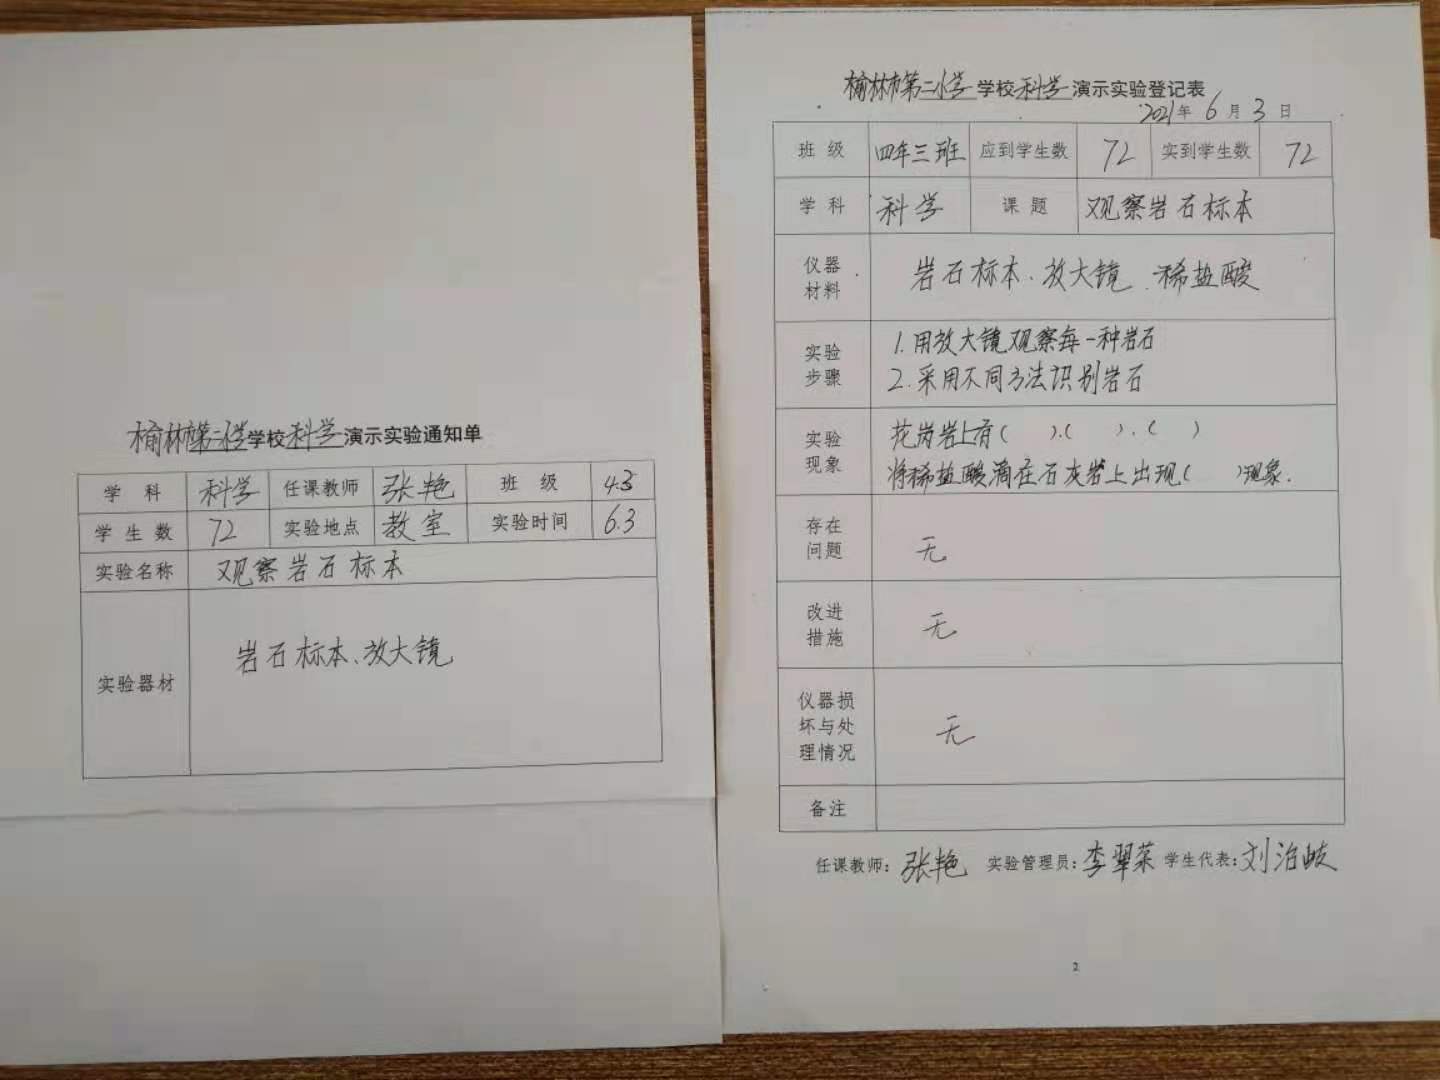 榆林市第二小学学校科学演示实验通知单
学 科 科学 任课教师 张艳 班 级 4.3
学生数 72 实验地点 教室 实验时间 6.3
实验名称 观察岩石标本
实验器材 岩石标本、放大镜
榆林市第二小学学校科学演示实验登记表
2021年 6月 3日
班 级 四年三班 应到学生数 72 实到学生数 72
学 科 科学 课 题 观察岩石标本
仪器
材料
岩石标本、放大镜、稀盐酸
实验
步骤
1.用放大镜观察每一种岩石
2.采用不同方法识别岩石
实验
现象
花岗岩上有( )、( )、( )
将稀盐酸滴在石灰岩上出现( )现象.
存在
问题
无
改进
措施
无
仪器损
坏与处
理情况
无
备注
任课教师:张艳 实验管理员:李翠菜 学生代表:刘治岐
2